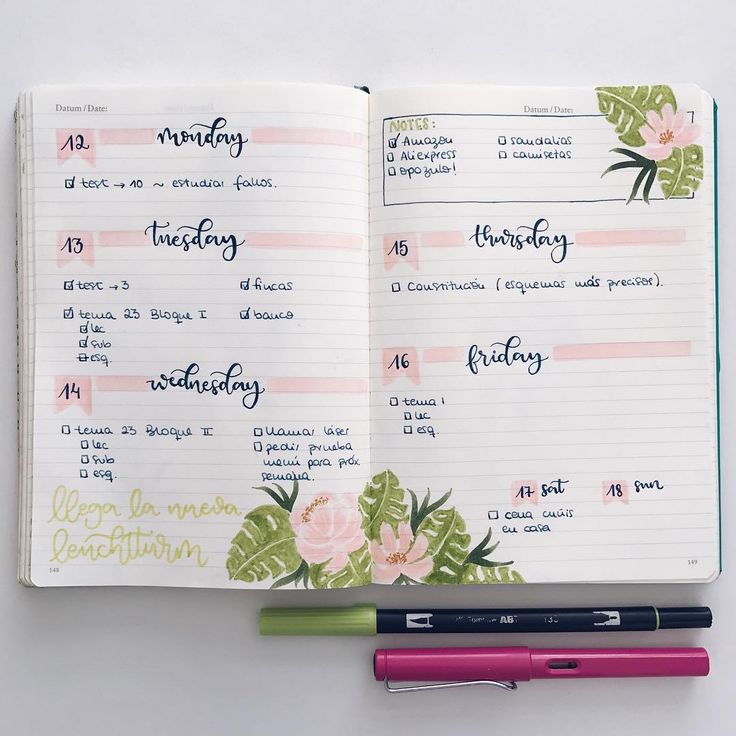 Datum / Date:
12 monday
test → 10 ~ estudiar fallos.
13 tuesday
test → 3
fincas
tema 23 Bloque I
banco
lec
sub
esq.
14 wednesday
tema 23 Bloque II
lec
sub
esq.
llamar láser
pedir prueba
menú para próx.
semana.
llega la nueva
leuchtturm
148
Datum / Date:
NOTES:
Amazon
sandalias
Aliexpress
camisetas
opozulo!
15 thursday
Constitución (esquemas más precisos).
16 friday
tema 1
lec
esq.
17 sat
18 sun
cena
en casa
149
ABT